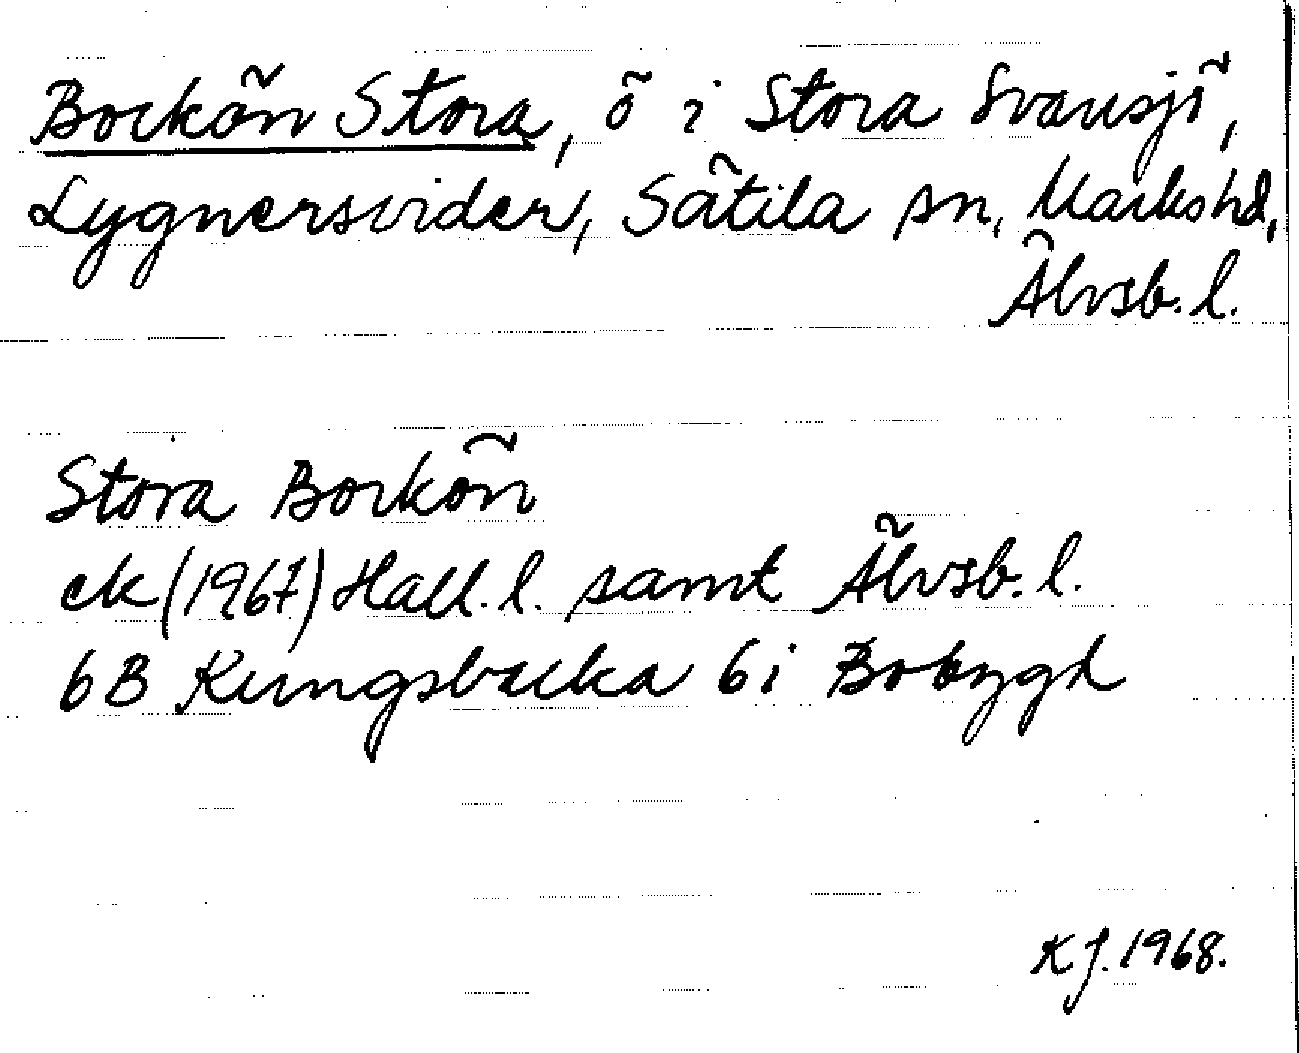 Bockön Stora, ö i Stora Svansjö,
Lygnersvider, Sätila sn, Marks hd,
Älvsb. l.
Stora Bockön
ek (1967) Hall. l. samt Älvsb. l.
6B Kungsbacka 6i Bobygd
KJ. 1968.